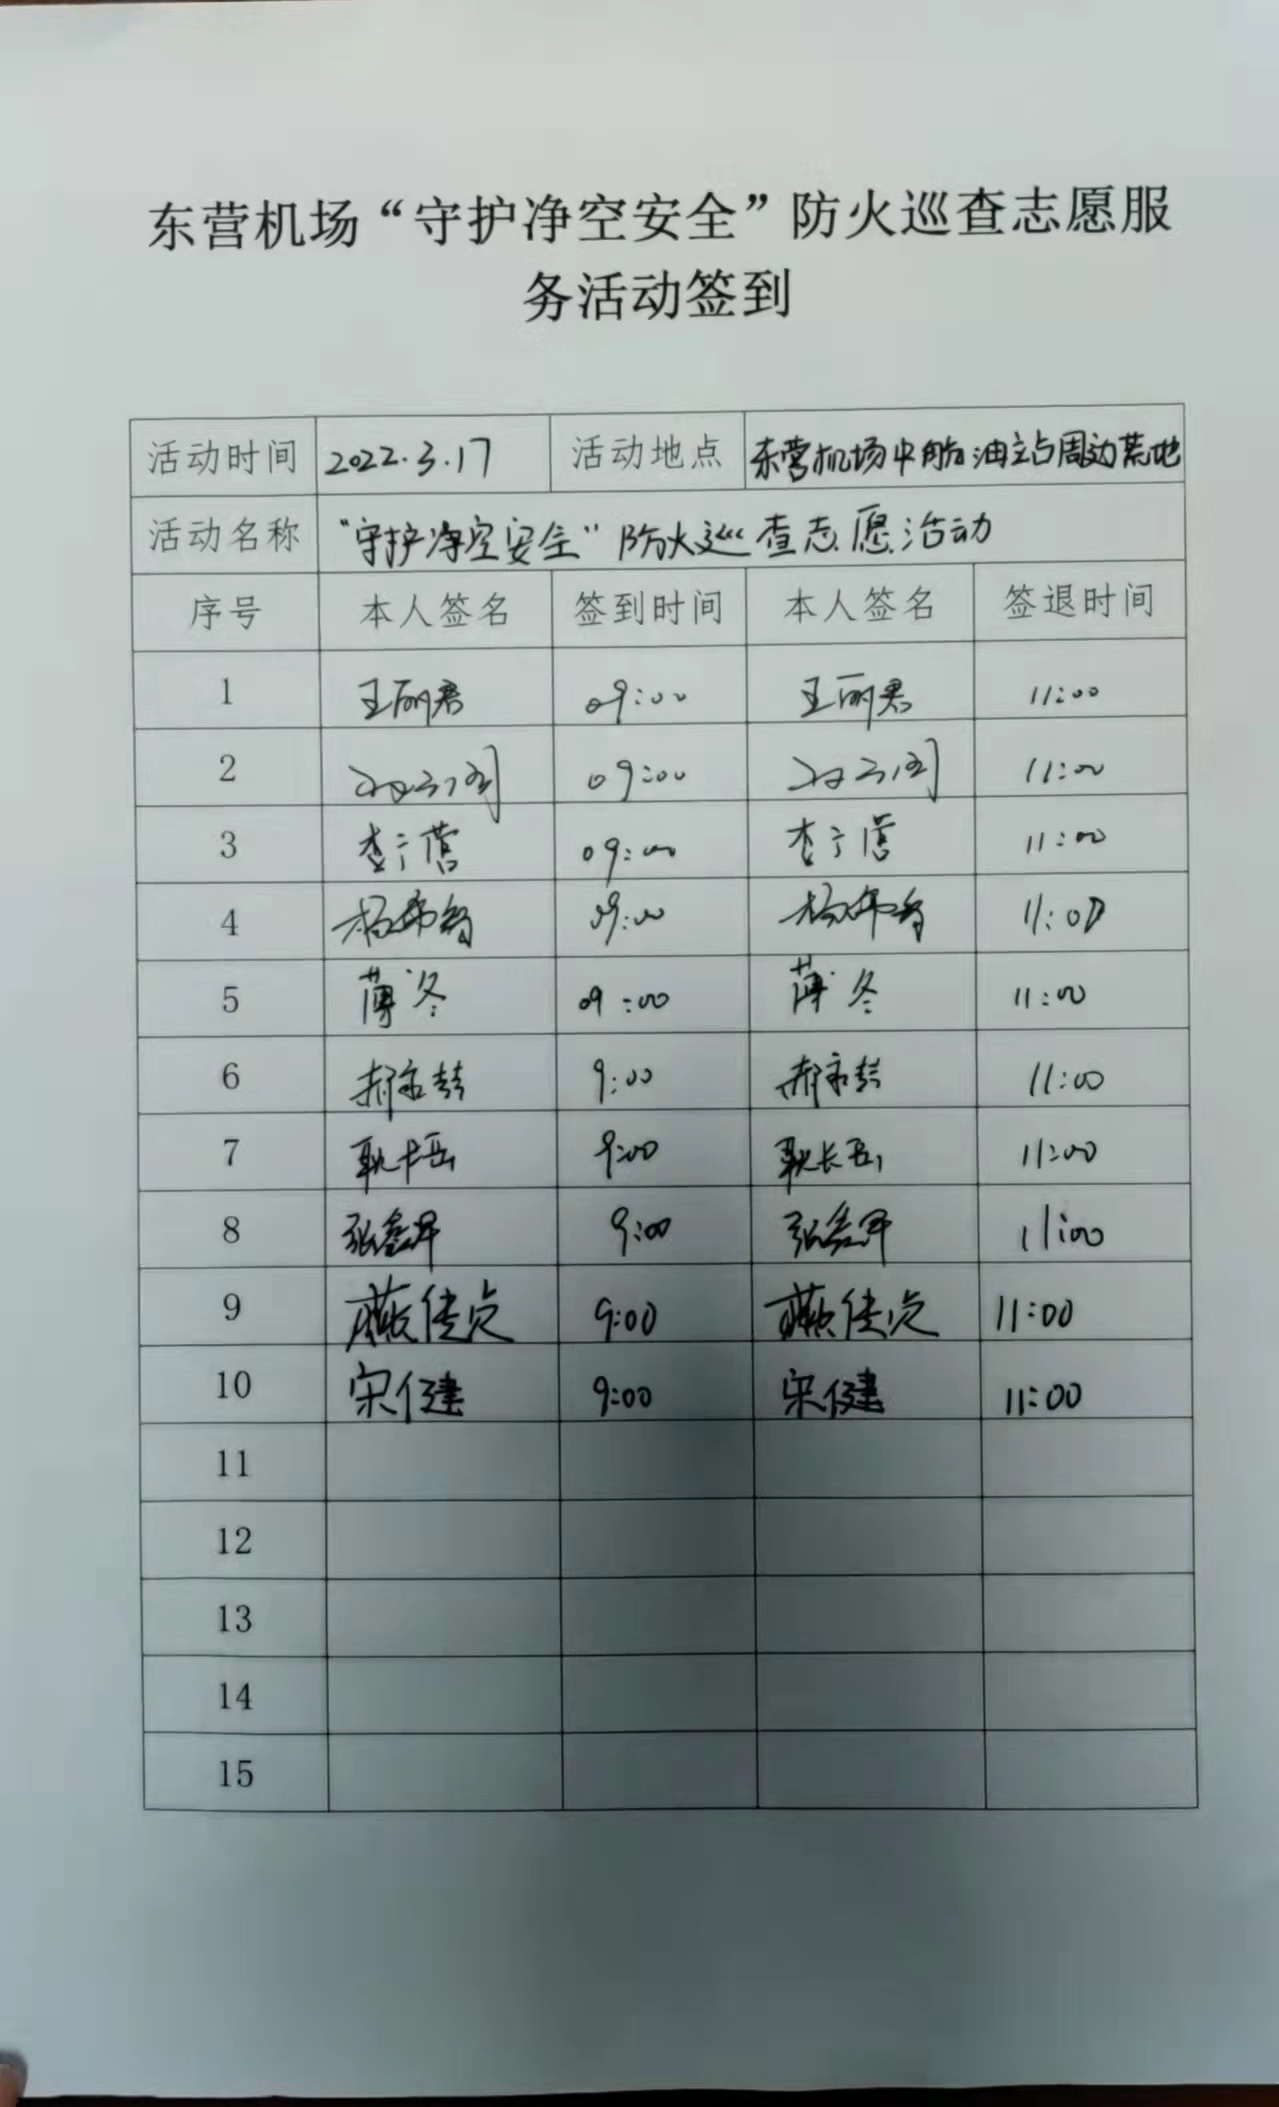 东营机场“守护净空安全”防火巡查志愿服
务活动签到
活动时间 2022.3.17 活动地点 东营机场中航油主站周边荒地
活动名称 “守护净空安全”防火巡查志愿活动
序号 本人签名 签到时间 本人签名 签退时间
1 王丽君 09:00 王丽君 11:00
2 09:00 11:00
3 09:00 11:00
4 09:00 11:00
5 薄冬 09:00 薄冬 11:00
6 9:00 11:00
7 耿长岳 9:00 耿长岳 11:00
8 9:00 11:00
9 9:00 11:00
10 宋健 9:00 宋健 11:00
11
12
13
14
15